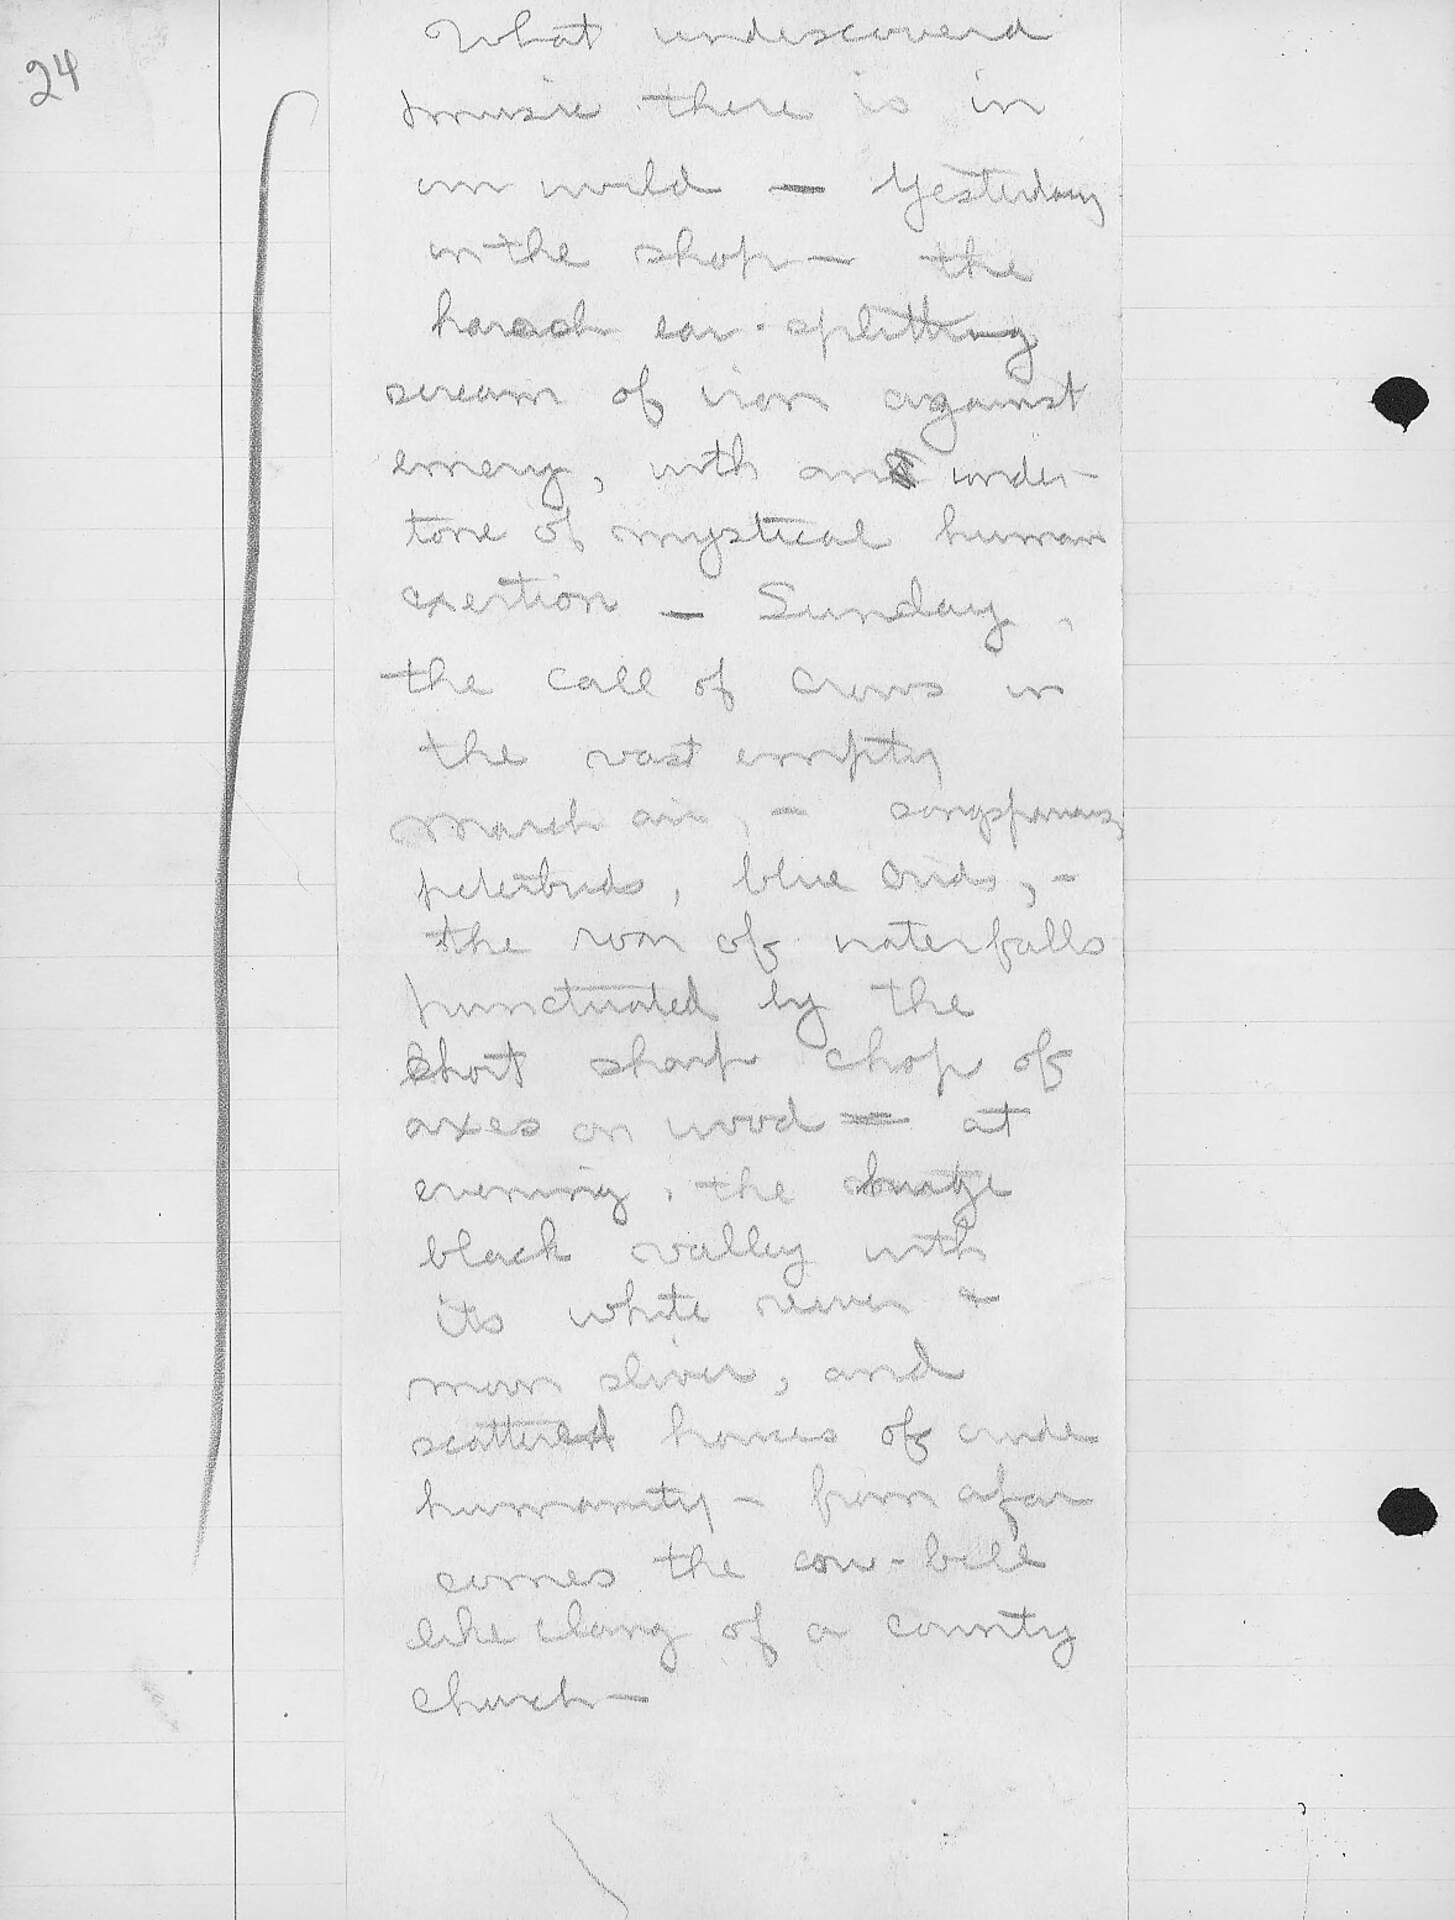 24
What undiscovered
music there is in
our world — Yesterday
in the shop — the
harsh ear-splitting
scream of iron against
emery, with an under-
tone of mystical human
exertion — Sunday,
the call of crows in
the vast empty
March air, — songsparrows,
peterbirds, blue birds, —
the roar of waterfalls
punctuated by the
short sharp chop of
axes on wood — at
evening, the huge
black valley with
its white river &
moon sliver, and
scattered homes of crude
humanity — from afar
comes the cow-bell
like clang of a country
church —